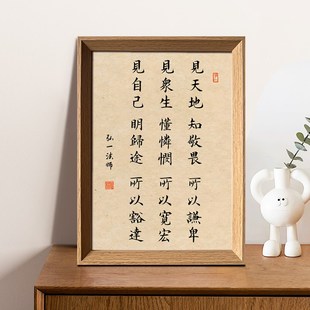 見天地 知敬畏 所以謙卑
見衆生 懂憐憫 所以寬宏
見自己 明歸途 所以豁達
弘一法師